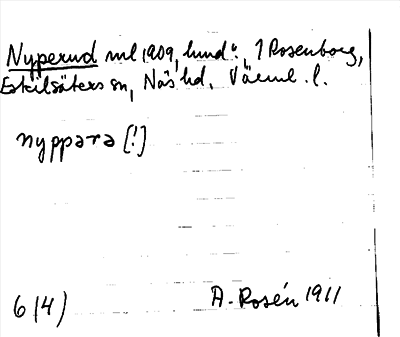 Nyperud ml 1909, lund":, 1 Rosenborg,
Eskilsäters sn, Näs hd. Värml. l.
nyppara [!]
6 (4) A. Rosén 1911